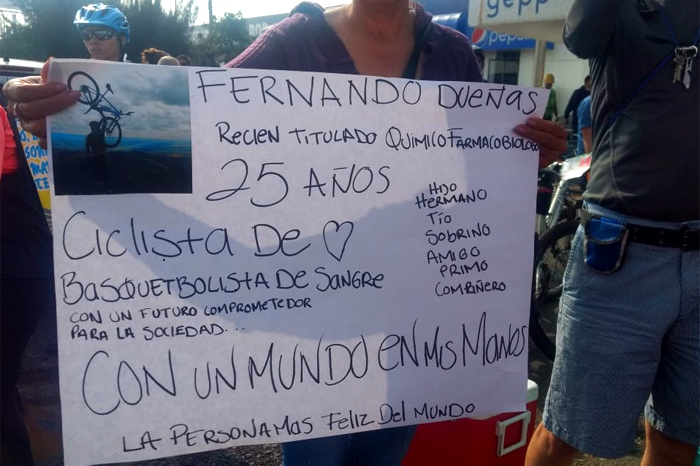 gepp
pepsi
FERNANDO DUEÑAS
RECIEN TITULADO QUIMICOFARMACOBIOLOGO
25 AÑOS
CICLISTA DE ♡
BASQUETBOLISTA DE SANGRE
CON UN FUTURO COMPROMETEDOR
PARA LA SOCIEDAD...
HIJO
HERMANO
TÍO
SOBRINO
AMIGO
PRIMO
COMPAÑERO
CON UN MUNDO EN MIS MANOS
LA PERSONA MAS FELIZ DEL MUNDO